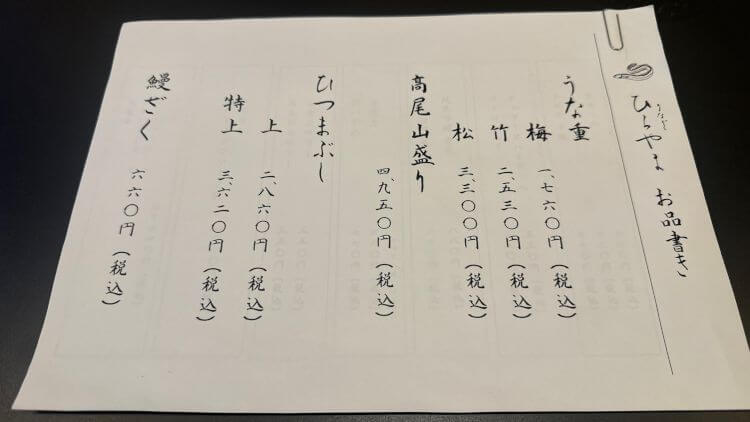 ひらやま お品書き
うな重
梅 一、七六〇円（税込）
竹 二、五三〇円（税込）
松 三、三〇〇円（税込）
高尾山盛り
四、九五〇円（税込）
ひつまぶし
上 二、八六〇円（税込）
特上 三、六二〇円（税込）
鰻ざく 六六〇円（税込）